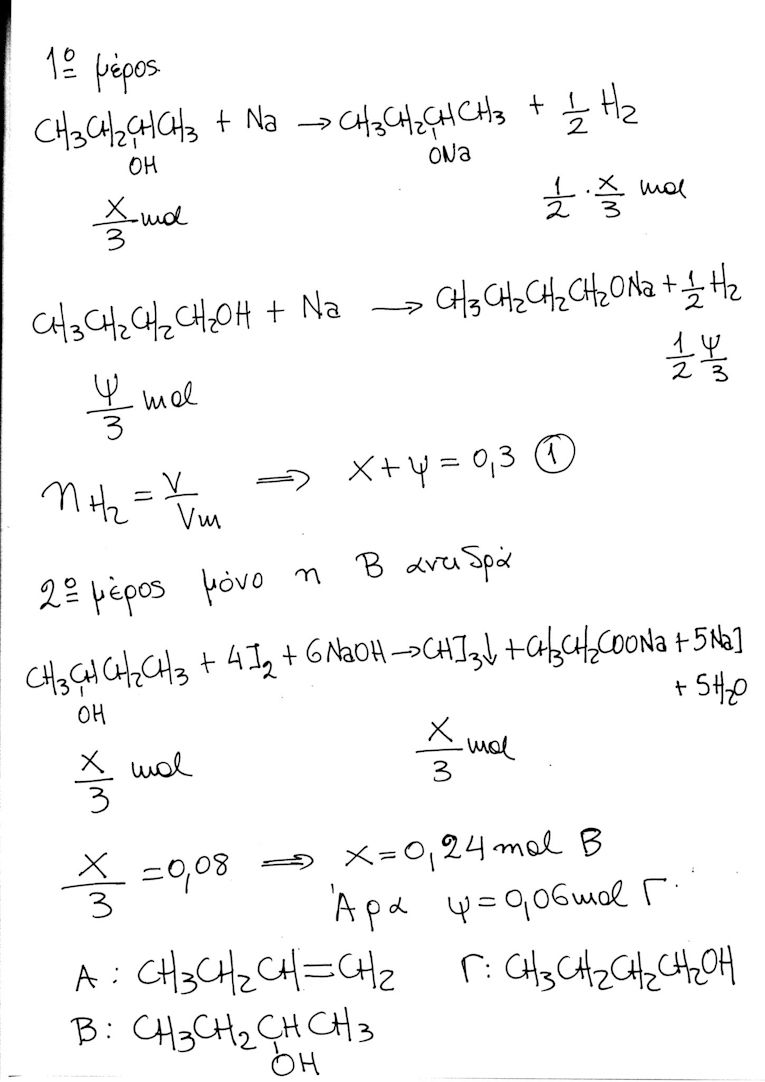 1º μέρος
CH3CH2CHCH3 + Na → CH3CH2CHCH3 + 1/2 H2
OH ONa
x/3 mol 1/2 · x/3 mol
CH3CH2CH2CH2OH + Na → CH3CH2CH2CH2ONa + 1/2 H2
ψ/3 mol 1/2 ψ/3
nH2 = V/Vm ⇒ x+ψ = 0,3 ①
2º μέρος μόνο η Β αντιδρά
CH3CHCH2CH3 + 4I2 + 6NaOH → CHI3↓ + CH3CH2COONa + 5NaI
OH + 5H2O
x/3 mol x/3 mol
x/3 = 0,08 ⇒ x = 0,24 mol B
Άρα ψ = 0,06 mol Γ.
A : CH3CH2CH=CH2 Γ: CH3CH2CH2CH2OH
B : CH3CH2CHCH3
OH